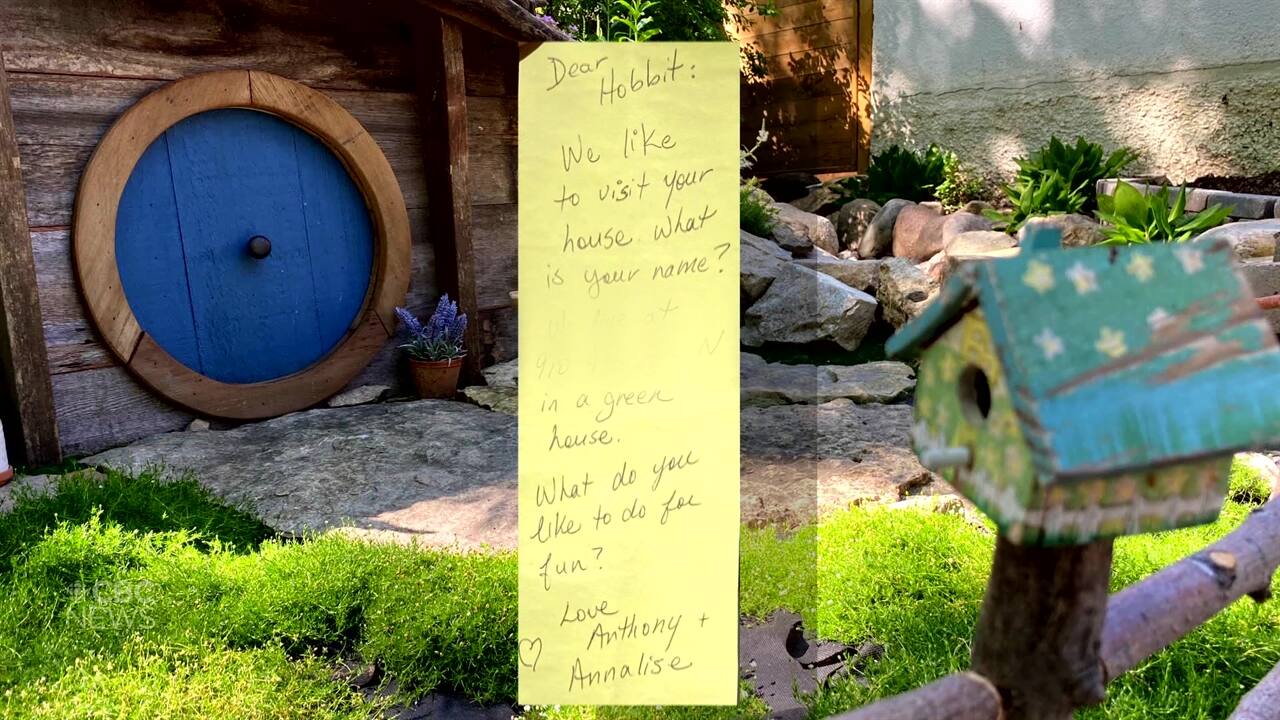 Dear
Hobbit:
We like
to visit your
house. What
is your name?
We live at
910 N
in a green
house.
What do you
like to do for
fun?
Love
Anthony +
♡ Annalise
CBC
NEWS